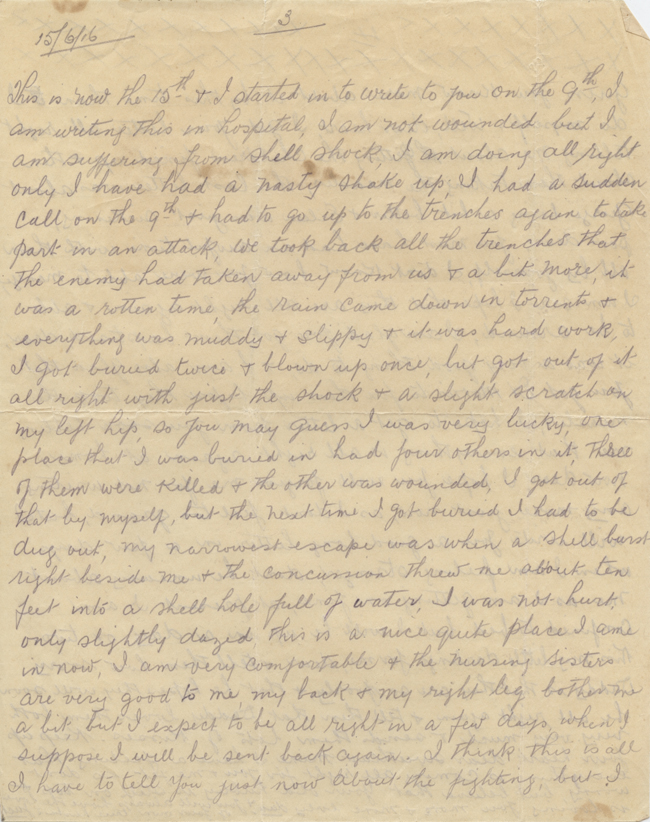 3
15/6/16
This is now the 15th & I started in to write to you on the 9th, I
am writing this in hospital, I am not wounded but I
am suffering from shell shock, I am doing all right
only I have had a nasty shake up, I had a sudden
call on the 9th & had to go up to the trenches again to take
part in an attack, we took back all the trenches that
the enemy had taken away from us & a bit more, it
was a rotten time, the rain came down in torrents &
everything was muddy & slippy & it was hard work,
I got buried twice & blown up once, but got out of it
all right with just the shock & a slight scratch on
my left hip, so you may guess I was very lucky, one
place that I was buried in had four others in it, three
of them were killed & the other was wounded, I got out of
that by myself, but the next time I got buried I had to be
dug out, my narrowest escape was when a shell burst
right beside me & the concussion threw me about ten
feet into a shell hole full of water, I was not hurt,
only slightly dazed, this is a nice quite place I ame
in now, I am very comfortable & the nursing sisters
are very good to me, my back & my right leg bother me
a bit, but I expect to be all right in a few days, when I
suppose I will be sent back again. I think this is all
I have to tell you just now about the fighting, but I